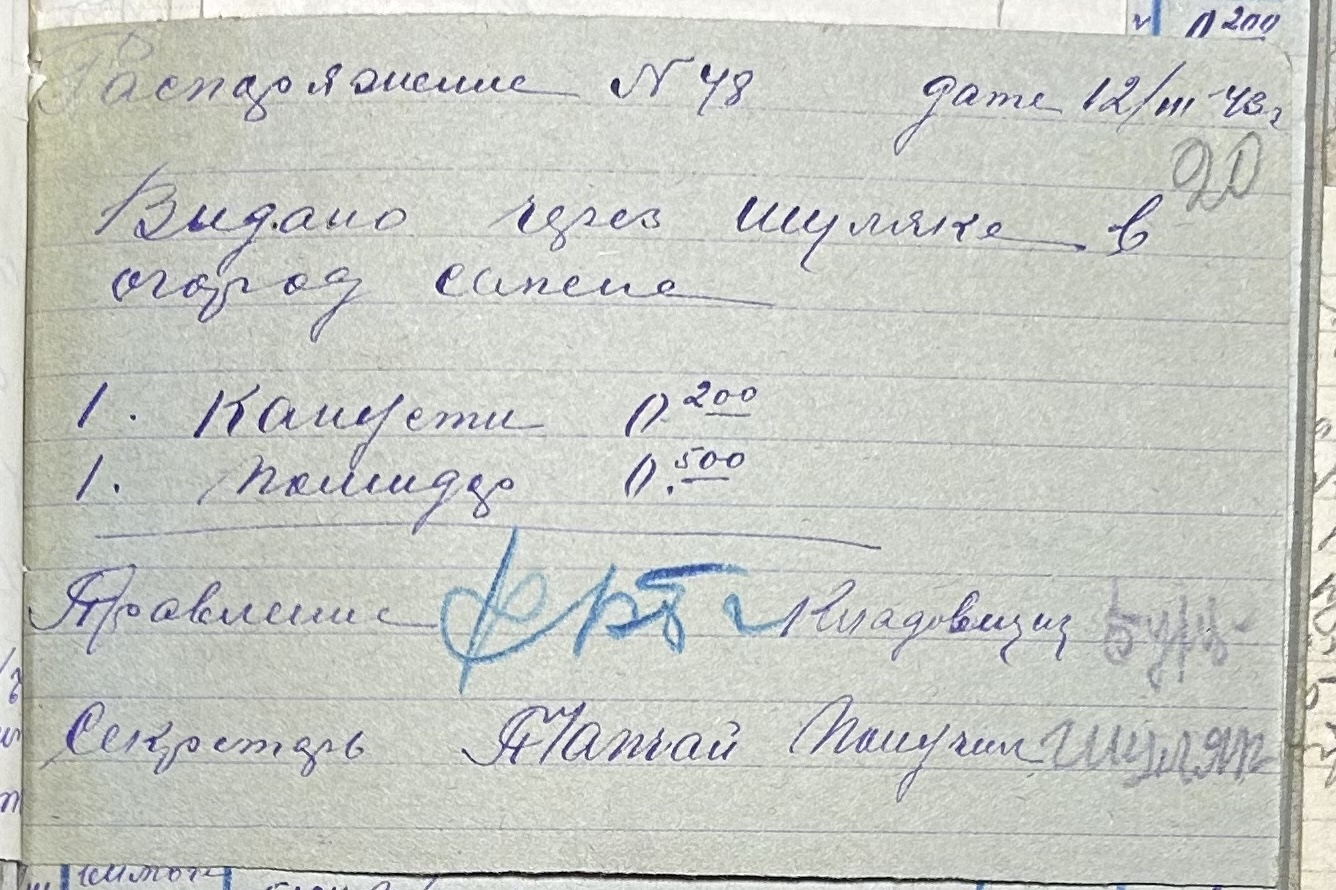 Распоряжение N 48 дате 12/III-43 г
90
Видано через Шуляке в
огород симена
1. Капусти 0.200
1. Помидор 0.500
Правление Кладовщиц Бурь
Секретарь Получил Шуляк